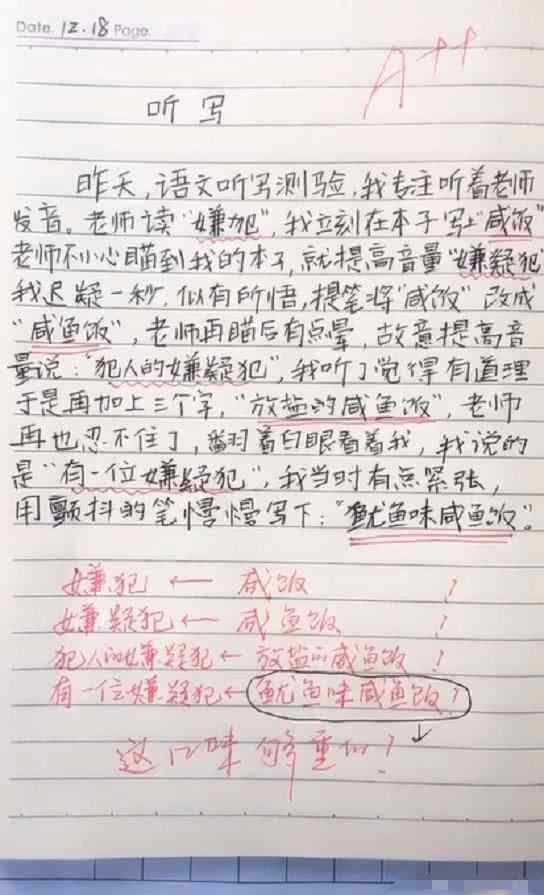 Date. 12.18 Page.
A++
听写
昨天，语文听写测验，我专注听着老师
发音。老师读“嫌犯”，我立刻在本子写上“咸饭”
老师不小心瞄到我的本子，就提高音量“嫌疑犯”
我迟疑一秒，似有所悟，提笔将“咸饭”改成
“咸鱼饭”，老师再瞄后有点晕，故意提高音
量说：“犯人的嫌疑犯”，我听了觉得有道理
于是再加上三个字，“放盐的咸鱼饭”，老师
再也忍不住了，翻着白眼看着我，我说的
是“有一位嫌疑犯”，我当时有点紧张，
用颤抖的笔慢慢写下：“鱿鱼味咸鱼饭”。
嫌犯 ← 咸饭 ？
嫌疑犯 ← 咸鱼饭 ？
犯人的嫌疑犯 ← 放盐的咸鱼饭 ？
有一位嫌疑犯 ← 鱿鱼味咸鱼饭 ？
这口味够重的！